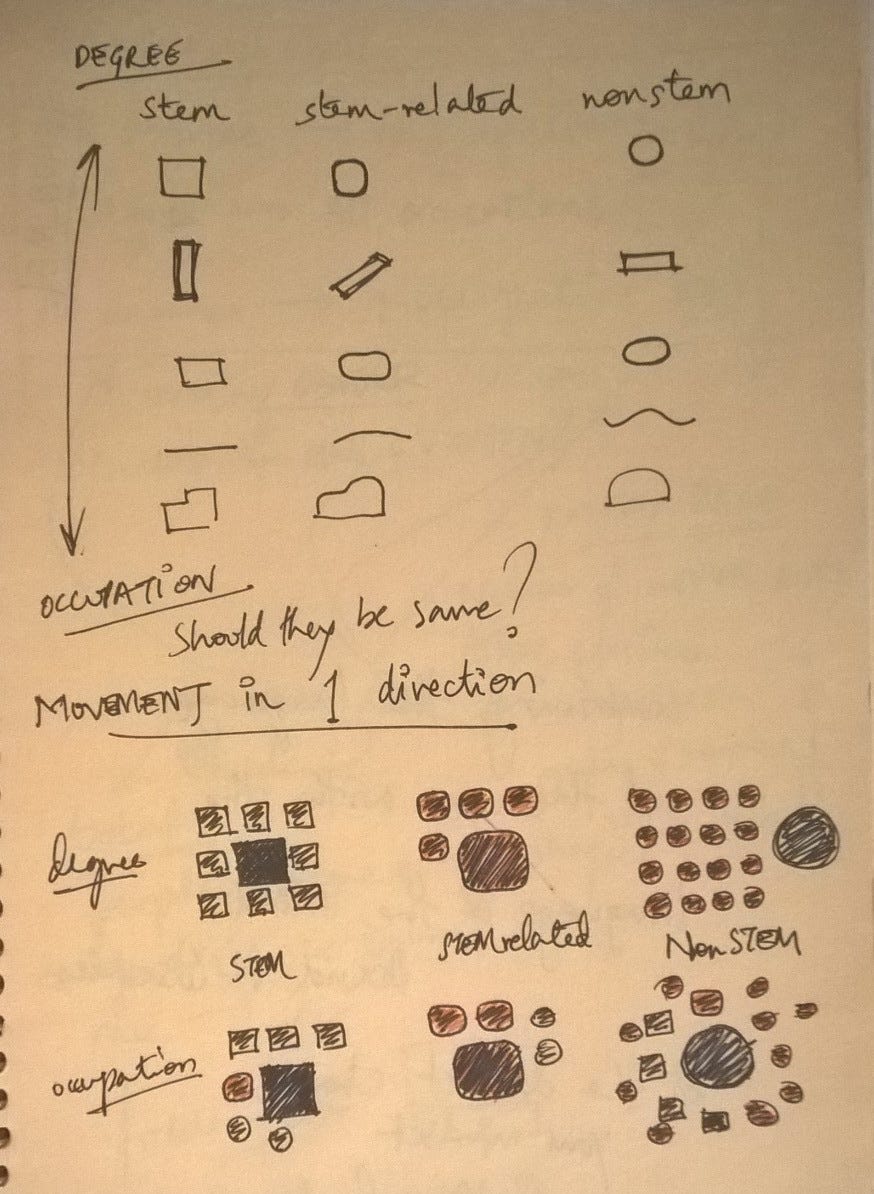 DEGREE
stem stem-related nonstem
OCCUPATION
Should they be same?
MOVEMENT in 1 direction
degree
STEM STEMrelated NonSTEM
occupation